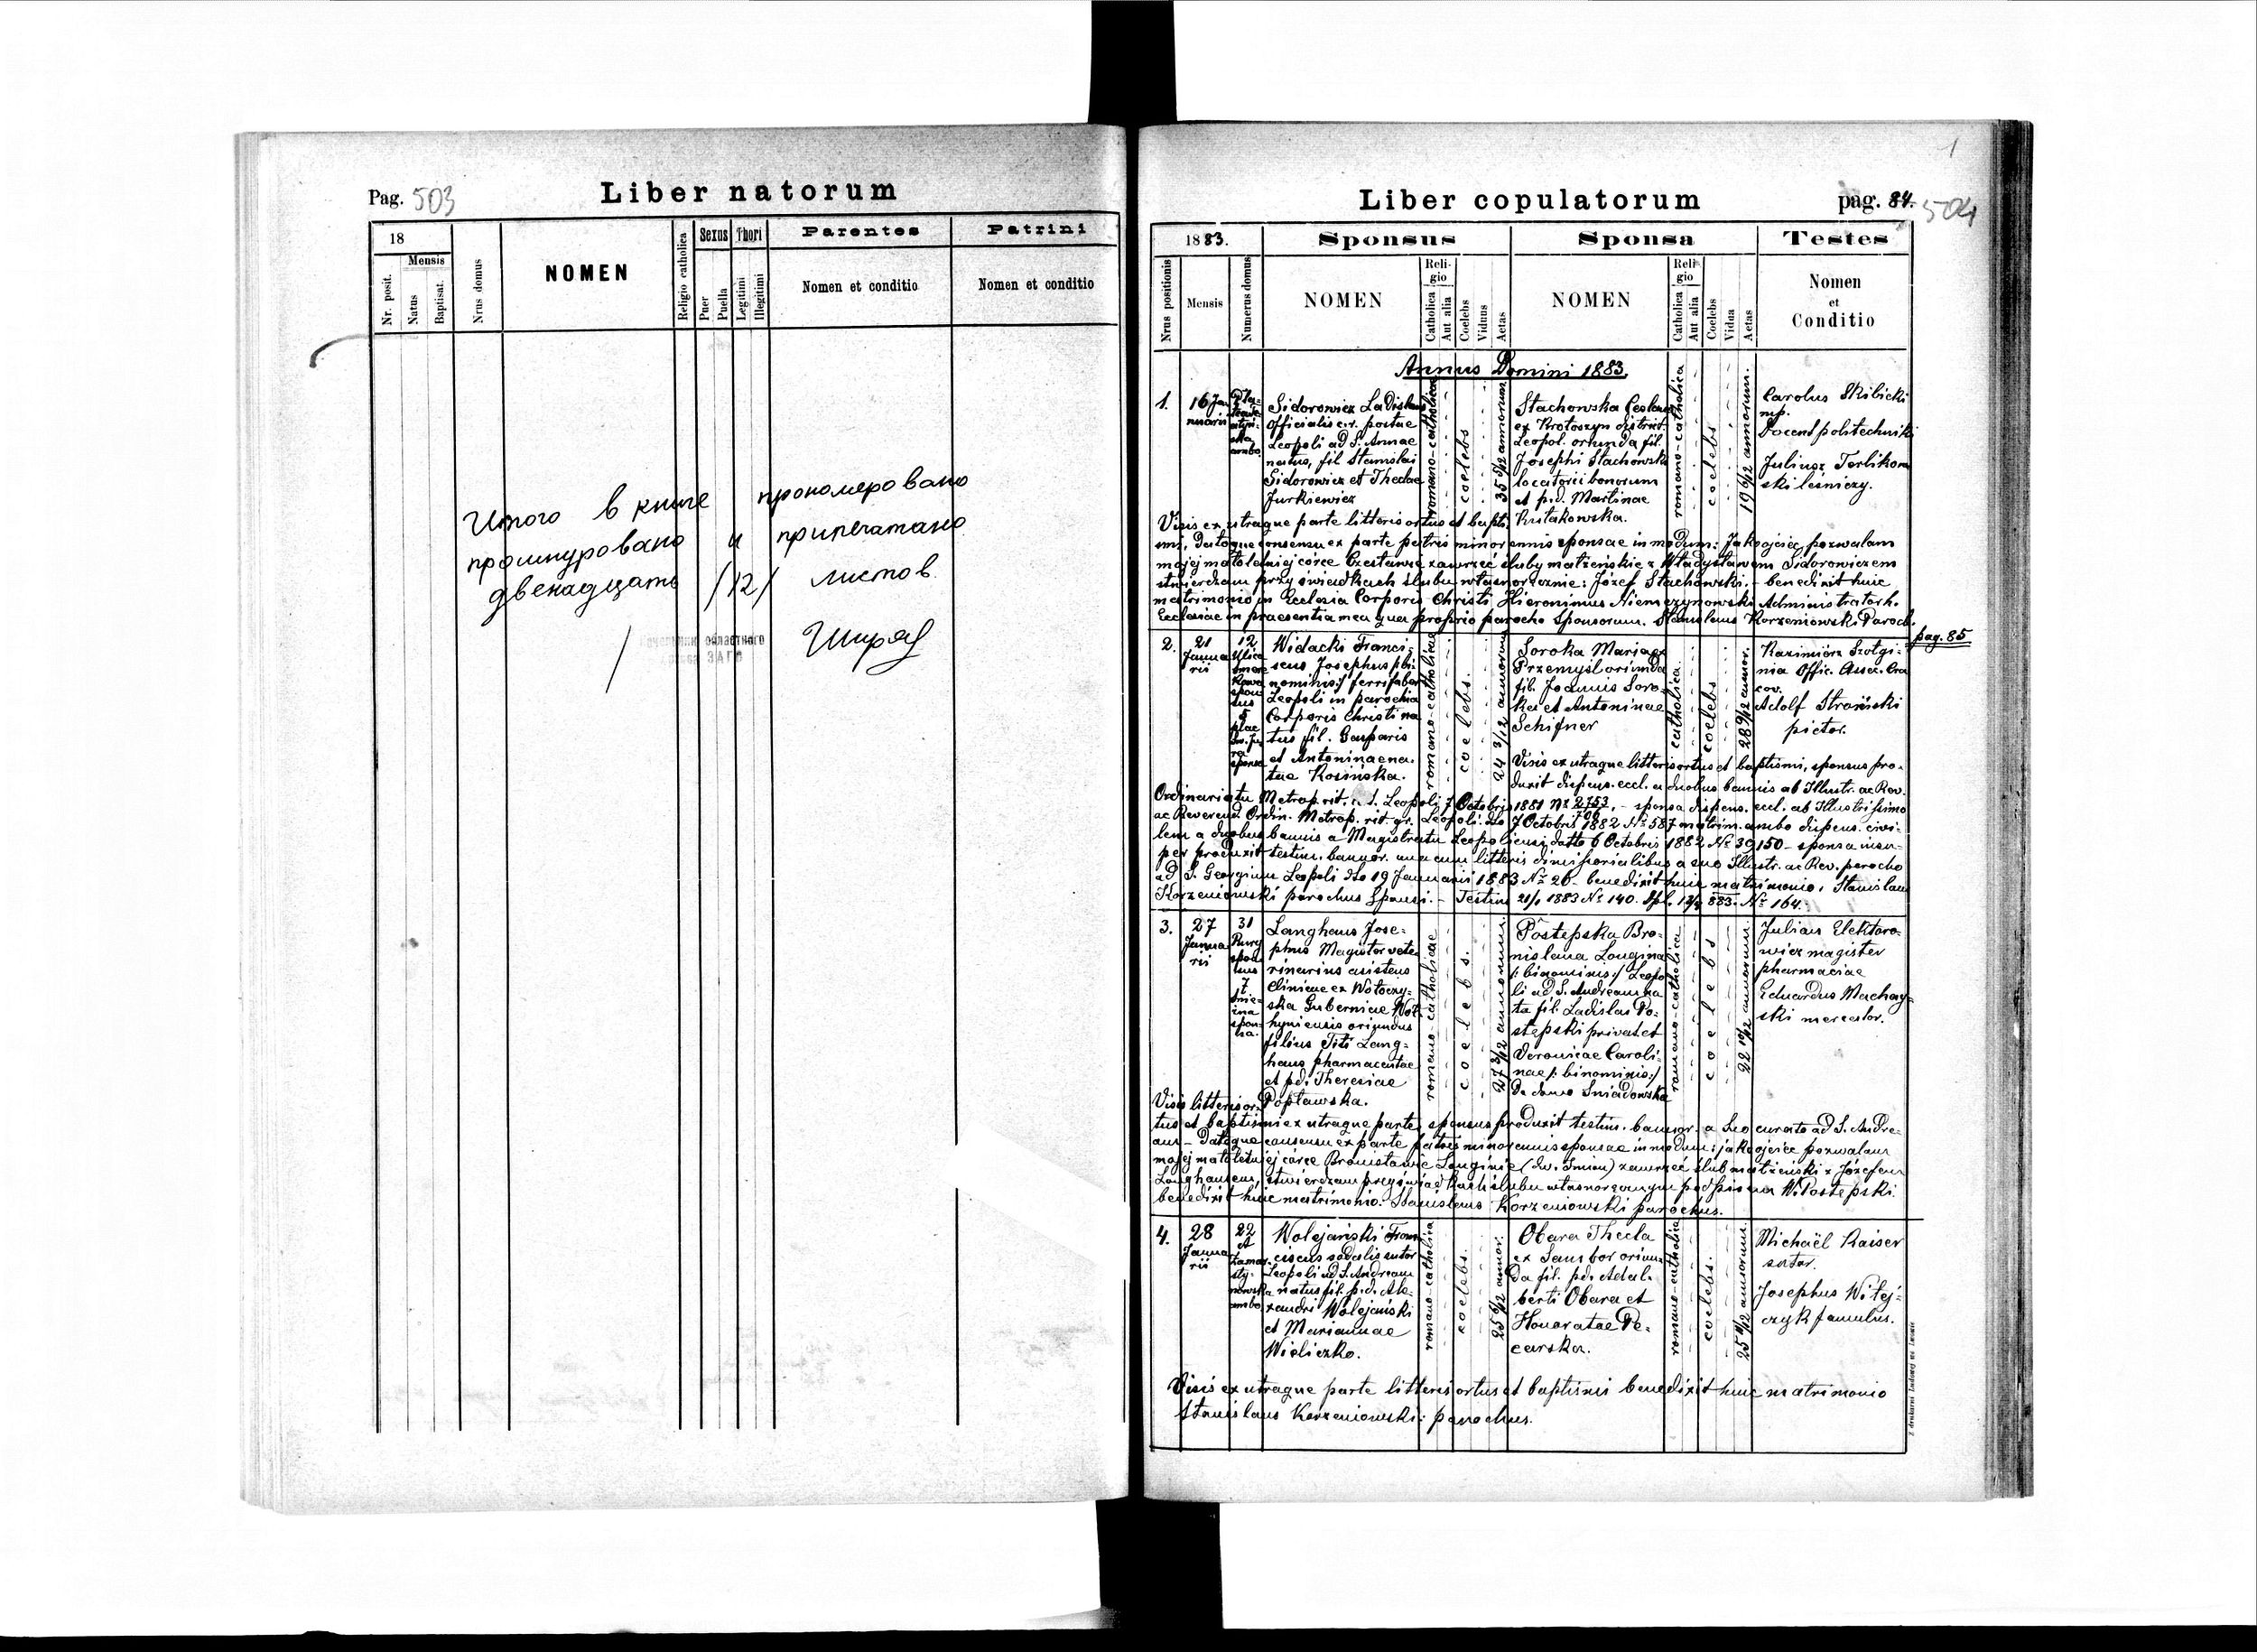 Pag. 503
Liber natorum
18
Mensis
Nr. posit.
Natus
Baptisat.
Nrus domus
NOMEN
Religio catholica
Sexus
Puer
Puella
Thori
Legitimi
Illegitimi
Parentes
Nomen et conditio
Patrini
Nomen et conditio
Итого в книге прономеровано
прошнуровано и припечатано
двенадцать /12/ листов
областного
ЗАГС
1
Liber copulatorum
pag. 84. 504
1883.
Sponsus
Sponsa
Testes
Nrus positionis
Mensis
Numerus domus
NOMEN
Religio
Catholica
Aut alia
Coelebs
Viduus
Aetas
NOMEN
Religio
Catholica
Aut alia
Coelebs
Vidua
Aetas
Nomen
et
Conditio
Annus Domini 1883.
1.
16 Januarii
ambo
Sidorowicz Ladislaus
officialis c.r. postae
Leopoli ad S. Annae
natus, fil Stanislai
Sidorowicz et Theclae
Jurkiewicz
romano-catholica
coelebs
35 5/12 annorum
Stachowska Ceslava
ex Krotoszyn district.
Leopol. oriunda fil.
Josephi Stachowski
locatorii bonorum
et p.d. Martinae
Rutakowska.
romano-catholica
coelebs
19 6/12 annorum.
Carolus Skibicki
mp.
Docent politechniki
Juliusz Terlikow
ski leśniczy.
Visis ex utraque parte litteris ortus et bapti
smi, datoque consensu ex parte patris minorennis sponsae in modum: Jako ojciec pozwalam
mojej małoletniej córce Czesławie zawrzeć śluby małżeńskie z Władysławem Sidorowiczem
stwierdzam przy świadkach ślubu własnoręcznie: Józef Stachowski. - benedixit huic
matrimonio in Ecclesia Corporis Christi Hieronimus Niemczynowski Administrator h.
Ecclesiae in praesentia mea qua proprio parocho Sponsorum. Stanislaus Korzeniowski Paroch.
pag. 85
2.
21
Januarii
12
Ulica
sponsus
5
plac
Św. Jura
sponsa
Widacki Franci-
scus Josephus /:bi
nominis:/ ferrifaber
Leopoli in parochia
Corporis Christi na
tus fil. Gasparis
et Antoninae na-
tae Rosińska.
romano-catholica
coelebs.
24 3/12 annorum
Soroka Maria ex
Przemyśl oriunda
fil. Joannis Soro-
ka et Antoninae
Schifner
catholica.
coelebs
28 9/12 annor.
Kazimierz Szołgi-
nia Offic. Assec. Cra
cov.
Adolf Stroński
pictor.
Visis ex utraque litteris ortus et baptismi, sponsus pro-
duxit dispens. eccl. a duobus bannis ab Illustr. ac Rev.
Ordinariatu Metrop. rit. l. Leopoli 7 Octobris 1881 No 2753, - sponsa dispens. eccl. ab Illustrissimo
ac Reverend. Ordin. Metrop. rit. gr. Leopoli ddo 7 Octobris 1882 No 587 matrim. ambo dispens. civi-
lem a duobus bannis a Magistratu Leopoliensi datto 6 Octobris 1882 No 39150 - sponsa insu-
per produxit testim. bannor. una cum litteris dimissorialibus a suo Illustr. ac Rev. parocho
ad S. Georgium Leopoli ddo 19 Januarii 1883 No 26 - benedixit huic matrimonio, Stanislaus
Korzeniowski parochus Sponsi. - Testim 21/1 1883 No 140. No 164.
3.
27
Januarii
31
sponsus
7
sponsa.
Langhaus Jose-
phus Magister vete-
rinarius asistens
clinicae ex Wołoczy-
ska Guberniae Woł-
hyniensis oriundus
filius Titi Lang-
haus pharmaceutae
et p.d. Theresiae
Popławska.
romano-catholicae
coelebs.
27 3/12 annorum
Postępska Bro-
nislava Longina
/:binominis:/ Leopo
li ad S. Andream na
ta fil. Ladislai Po-
stępski privat. et
Veronicae Caroli-
nae /:binominis:/
De domo Śniadowska
romano-catholica
coelebs
22 10/12 annorum.
Julian Elektoro-
wicz magister
pharmaciae
Eduardus Machay-
ski mercator.
Visis litteris or-
tus et baptismi ex utraque parte, sponsus produxit testim. bannor. a Leo curato ad S. Andre-
am - Datoque consensu ex parte patris minorennis sponsae in modum: jako ojciec pozwalam
mojej małoletniej córce Bronisławie Longinie (dw. imion) zawrzeć ślub małżeński z Józefem
Langhausem, stwierdzam przy świadkach ślubu własnoręcznym podpisem W. Postępski.
benedixit huic matrimonio. Stanislaus Korzeniowski parochus.
4.
28
Januarii
22
A
Zamar-
sty-
nowska
ambo
Wolejański Fran-
ciscus sodalis sutor
Leopoli ad S. Andream
natus fil. p.d. Ale-
xandri Wolejański
et Mariannae
Wieliczko.
romano-catholica
coelebs.
25 6/12 annor.
Obara Thecla
ex Sambor oriun-
da fil. p.d. Adal-
berti Obara et
Honoratae Pe-
carska.
romano-catholica
coelebs.
25 4/12 annorum.
Michaël Kaiser
sutor.
Josephus Witej-
czyk famulus.
Visis ex utraque parte litteris ortus et baptismi benedixit huic matrimonio
Stanislaus Korzeniowski: parochus.
Z drukarni Ludowej we Lwowie